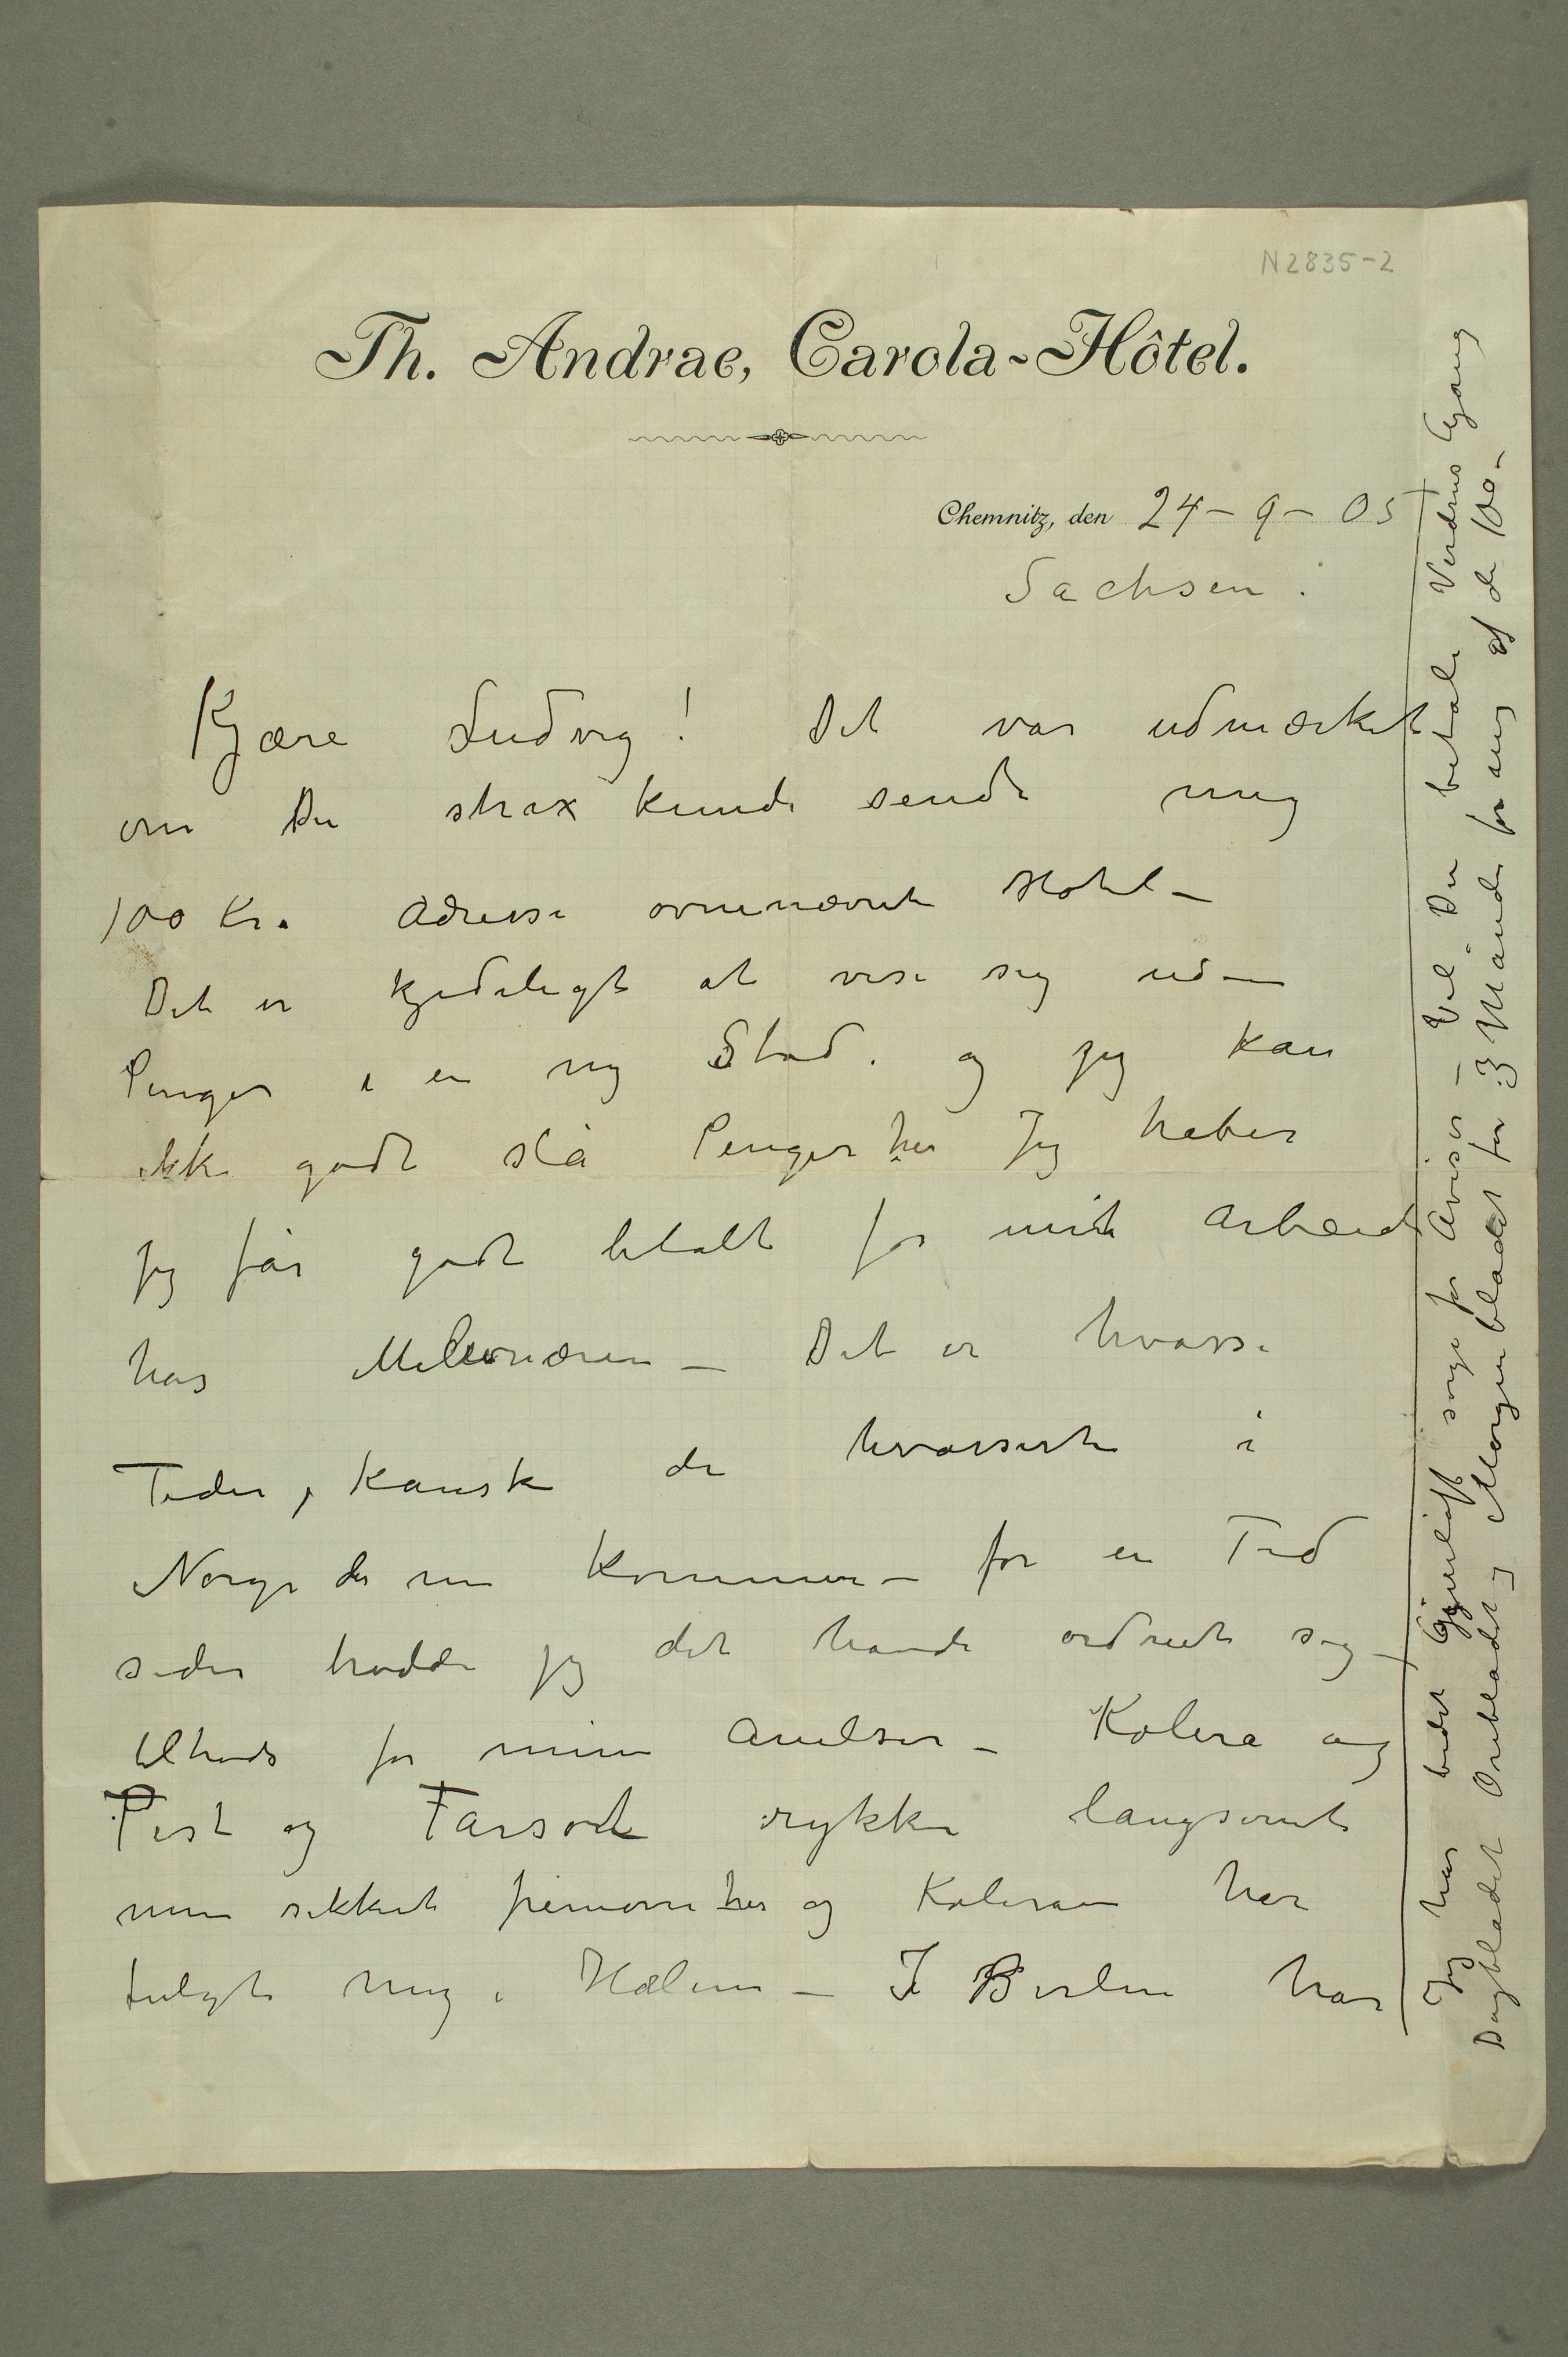 N 2835-2
Th. Andrae, Carola-Hôtel.
Chemnitz, den 24 – 9 – 05
Sachsen.
Kjære Ludvig! Det var udmærket
om Du strax kunde sende mig
100 Kr. Adresse ovennævnte Hotel –
Det er kjedeligt at vise sig uden
Penger i en ny Stad. og jeg kan
ikke godt slå Penger her Jeg håber
jeg får godt betalt for mit Arbeid
hos Millionæren – Det er hvasse
Tider, kanske de hvasseste i
Norge der nu kommer – for en Tid
siden trodde jeg det havde ordnet sig –
tiltrods for mine Anelser – Kolera og
Pest og Farsot rykker langsomt
men sikkert fremover her og Koleraen har
fulgt mig i Hælene – I Berlin har
Jeg har bedt Gjerløff sørge for Aviser – Vil Du betale Verdens Gang
Dagbladet Ørebladet og Morgenbladet for 3 Måneder for mig af de 100 –